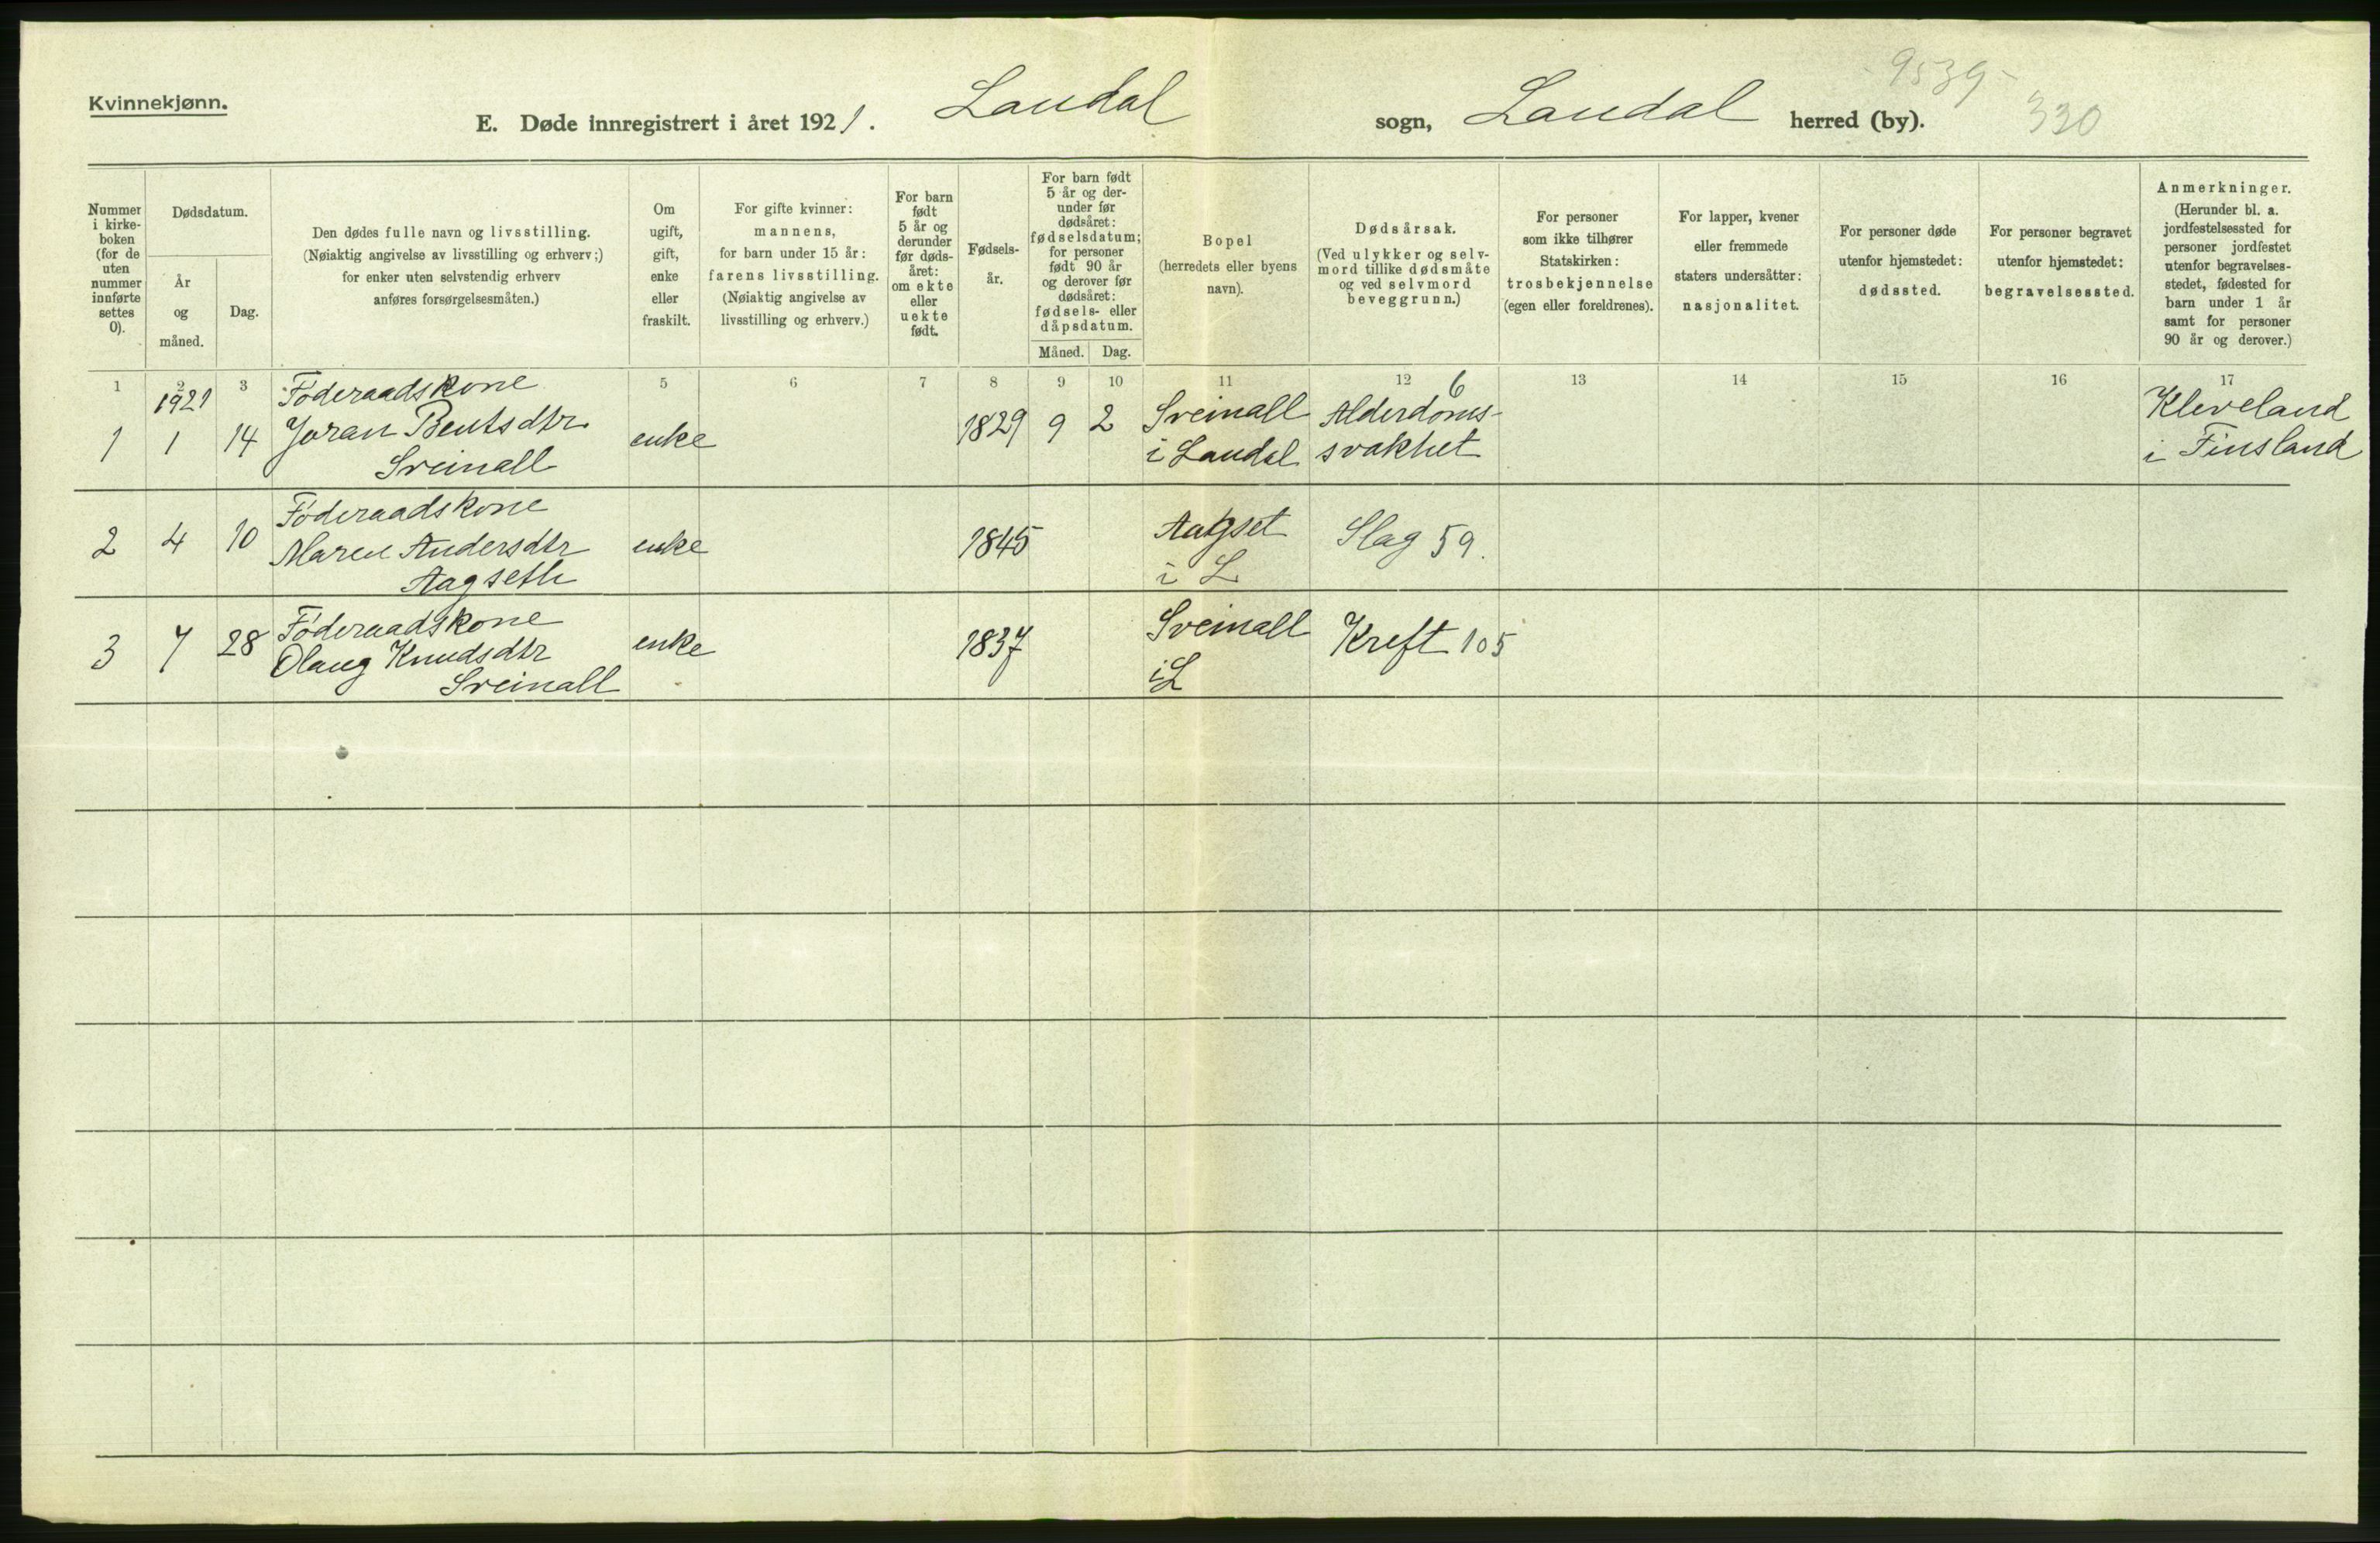 Kvinnekjønn.
E. Døde innregistrert i året 1921. Laudal sogn, Laudal herred (by).
9539
330
Nummer i kirkeboken (for de uten nummer innførte settes 0).
Dødsdatum.
År og måned.
Dag.
Den dødes fulle navn og livsstilling.
(Nøiaktig angivelse av livsstilling og erhverv;)
for enker uten selvstendig erhverv
anføres forsørgelsesmåten.)
Om
ugift,
gift,
enke
eller
fraskilt.
For gifte kvinner:
mannens,
for barn under 15 år:
farens livsstilling.
(Nøiaktig angivelse av
livsstilling og erhverv.)
For barn
født
5 år og
derunder
før døds-
året:
om ekte
eller
uekte
født.
Fødsels-
år.
For barn født
5 år og der-
under før
dødsåret:
fødselsdatum;
for personer
født 90 år
og derover før
dødsåret:
fødsels- eller
dåpsdatum.
Måned. Dag.
Bopel
(herredets eller byens
navn).
Dødsårsak.
(Ved ulykker og selv-
mord tillike dødsmåte
og ved selvmord
beveggrunn.)
For personer
som ikke tilhører
Statskirken:
trosbekjennelse
(egen eller foreldrenes).
For lapper, kvener
eller fremmede
staters undersåtter:
nasjonalitet.
For personer døde
utenfor hjemstedet:
dødssted.
For personer begravet
utenfor hjemstedet:
begravelsessted.
Anmerkninger.
(Herunder bl. a.
jordfestelsessted for
personer jordfestet
utenfor begravelses-
stedet, fødested for
barn under 1 år
samt for personer
90 år og derover.)
1 2 3 5 6 7 8 9 10 11 12 13 14 15 16 17
1921
1 1 14
Føderaadskone
Joran Bentsdtr
Sveinall
enke
1829 9 2
Sveinall
i Laudal
6
Alderdoms-
svakhet
Kleveland
i Finsland
2 4 10
Føderaadskone
Maren Andersdtr
Aagseth
enke
1845
Aagset
i L
Slag 59.
3 7 28
Føderaadskone
Olaug Knudsdtr
Sveinall
enke
1837
Sveinall
i L
Kreft 105